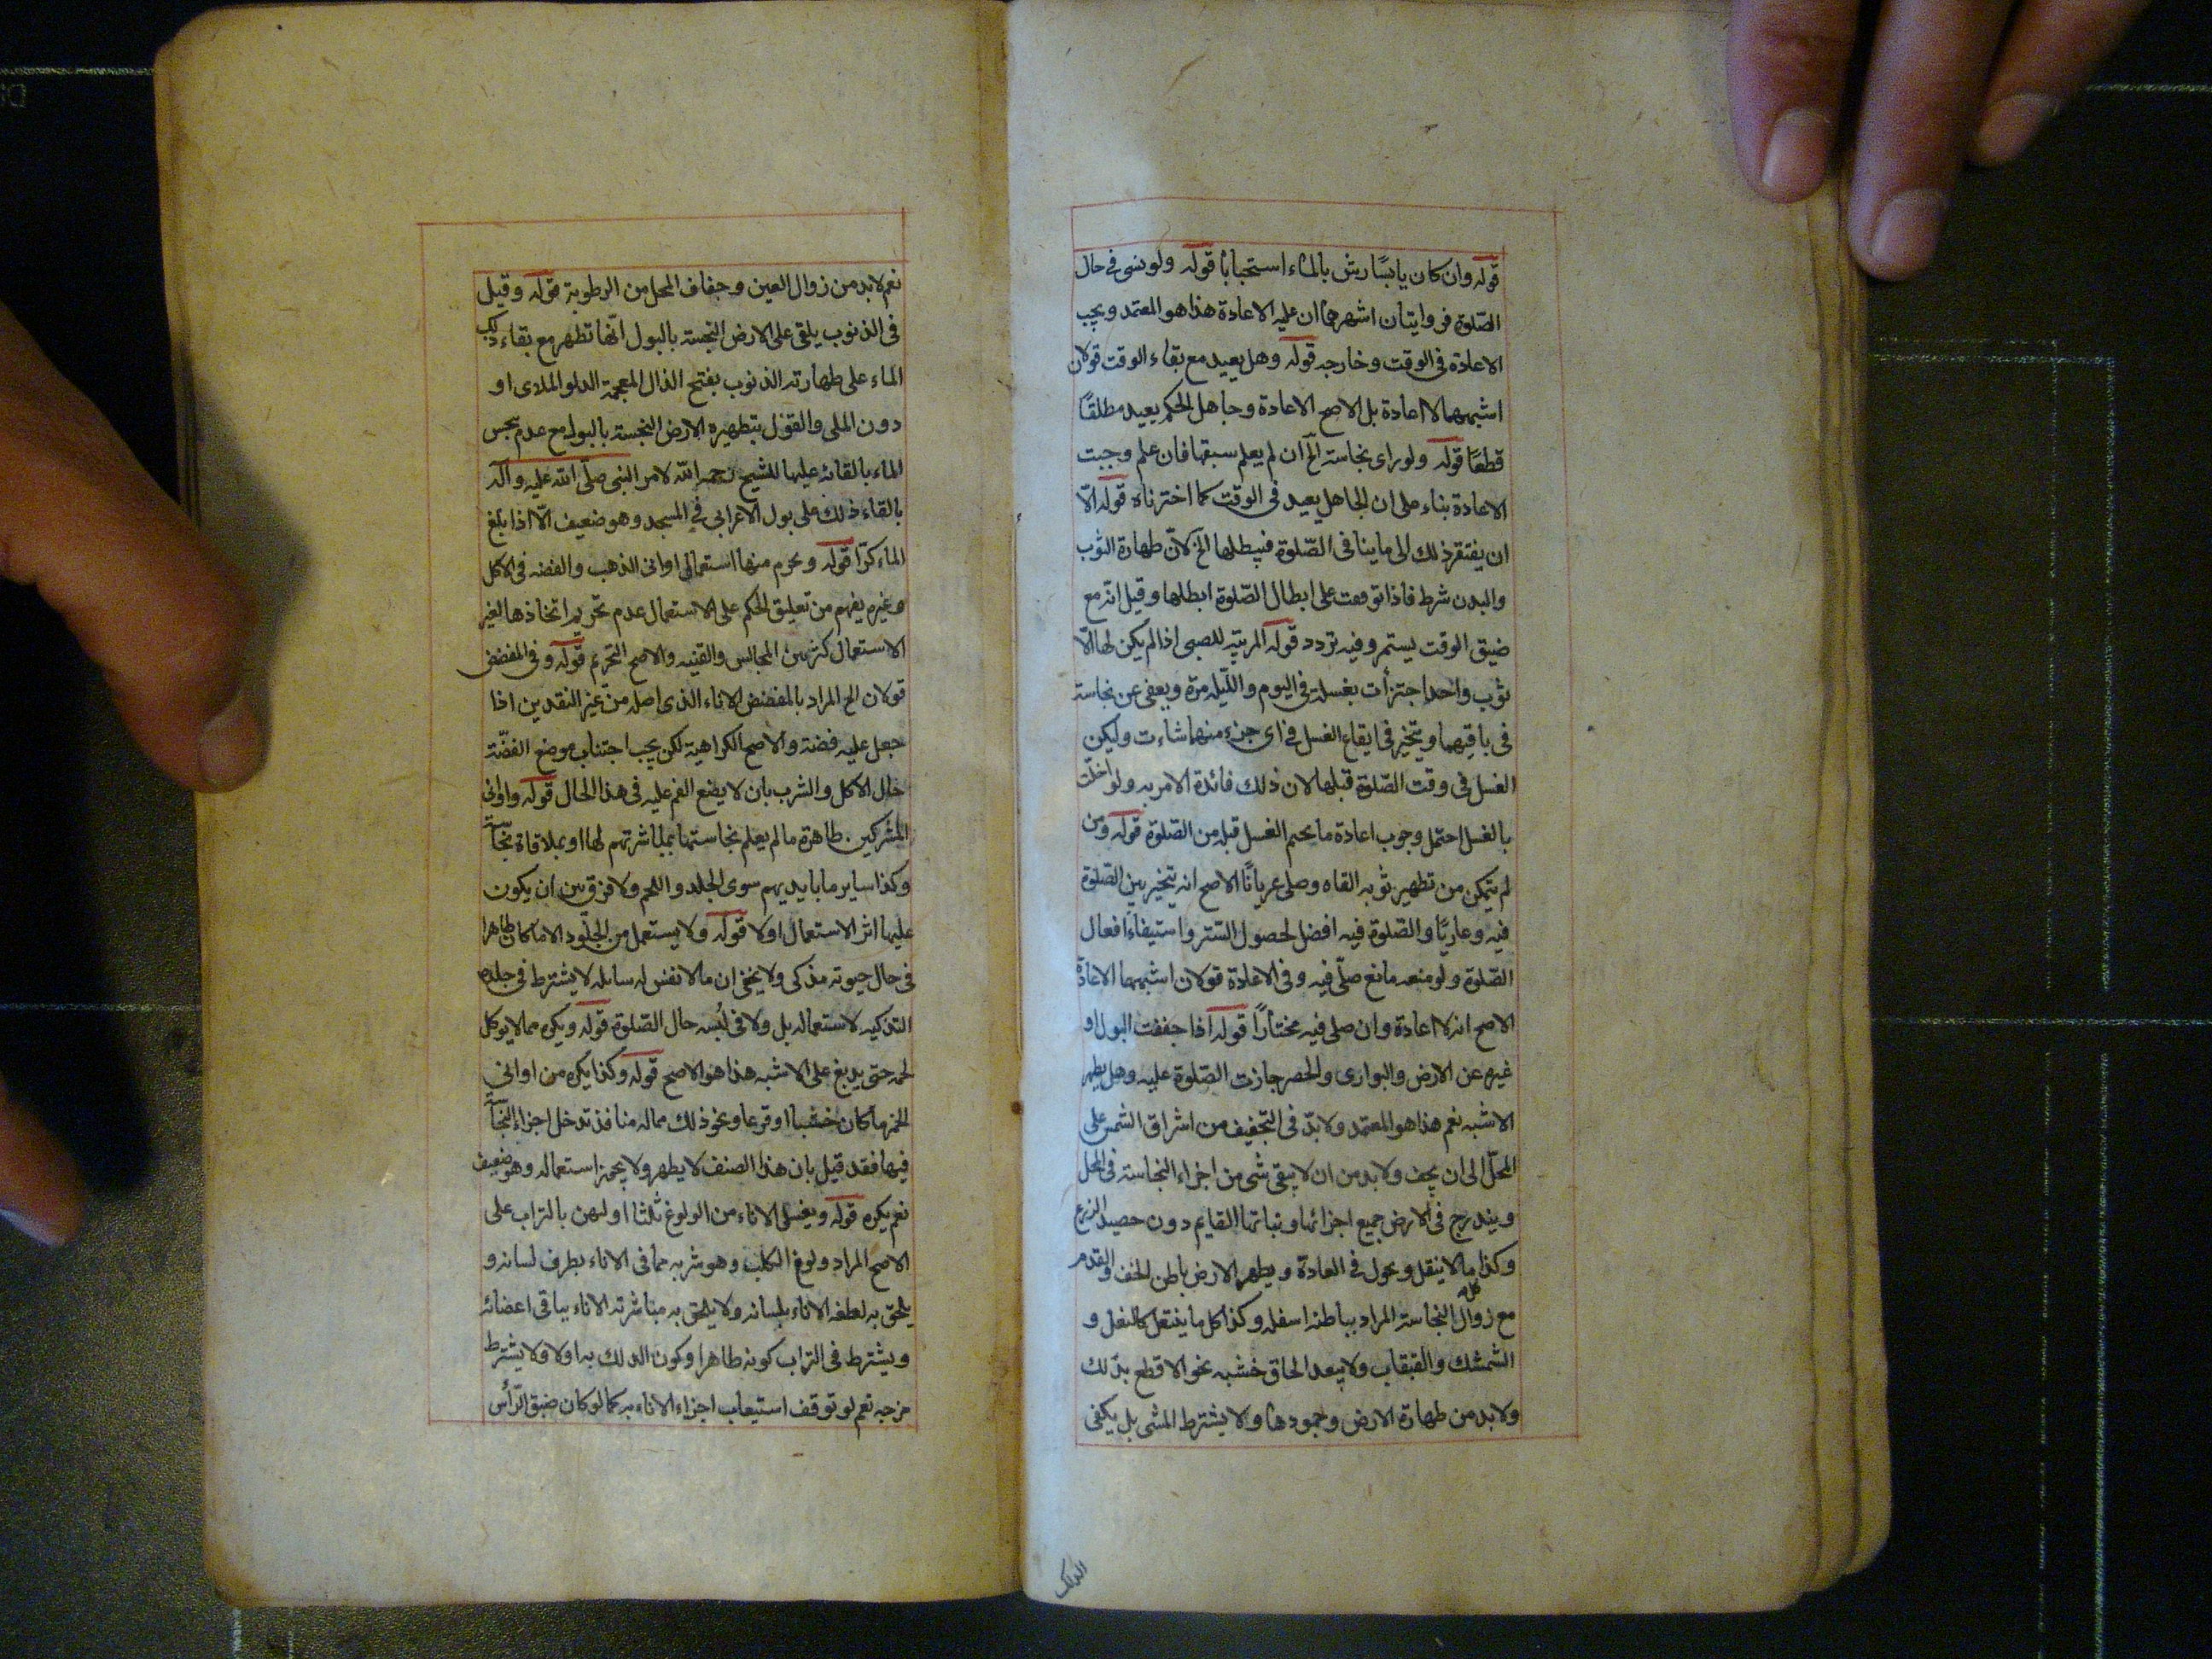 قوله وان كان يابسًا رش بالماء استحبابا قوله ولو نسى فى حال
الصّلوة فروايتان اشهرهما ان عليه الاعادة هذا هو المعتمد ويجب
الاعادة فى الوقت وخارجه قوله وهل يعيد مع بقاء الوقت قولان
اشبههما لا اعادة بل الاصح الاعادة وجاهل الحكم يعيد مطلقًا
قطعًا قوله ولو راى نجاسة الخ ان لم يعلم سبقها فان علم وجبت
الاعادة بناء على ان الجاهل يعيد فى الوقت كما اخترناه قوله الّا
ان يفتقر ذلك الى ما ينافى الصّلوة فيبطلها الخ لانّ طهارة الثوب
والبدن شرط فاذا توقفت على ابطال الصّلوة ابطلها وقيل انه مع
ضيق الوقت يستمر وفيه تردد قوله المربّيه للصبى اذا لم يكن لها الّا
ثوب واحد اجتزأت بغسله فى اليوم والليله مرة ويعفى عن نجاسته
فى باقيهما ويتخير فى ايقاع الغسل فى اى جزء منهما شاءت وليكن
الغسل فى وقت الصّلوة قبلها لان ذلك فائدة الامر به ولو اخلّت
بالغسل احتمل وجوب اعادة ما يحتم الغسل قبله من الصّلوة قوله ومن
لم يتمكن من تطهير ثوبه القاه وصلى عريانًا الاصح انه يتخير بين الصّلوة
فيه وعاريًا والصّلوة فيه افضل لحصول الستر واستيفاء افعال
الصّلوة ولو منعه مانع صلّى فيه وفى الاعادة قولان اشبههما الاعادة
الاصح انه لا اعادة وان صلى فيه مختارًا قوله اذا جففت البول او
غيره عن الارض والبوارى والحصر جازت الصّلوة عليه وهل يطهر
الاشبه نعم هذا هو المعتمد ولا بدّ فى التجفيف من اشراق الشمس على
المحلّ الى ان يجف ولا بد من ان لا يبقى شى من اجزاء النجاسة فى المحل
ويندرج فى الارض جميع اجزائها ونباتها القايم دون حصيد الزرع
وكذا ما لا ينقل ويحول فى العادة ويطهر الارض باطن الخف والقدم
مع زوال النجاسة المراد بباطنه اسفله وكذا كل ما ينتعل كالنعل و
الشمشك والقبقاب ولا يبعد الحاق خشبه نحو الاقطع بذلك
ولا بد من طهارة الارض وجمودها ولا يشترط المشى بل يكفى
الدلك
نعم لا بد من زوال العين وجفاف المحل من الرطوبة قوله وقيل
فى الذنوب يلقى على الارض النجسة بالبول انّها تطهر مع بقاء ذلك
الماء على طهارته الذنوب بفتح الذال المعجمة الدلو الملاى او
دون الملى والقول بتطهيره الارض النجسة بالبول مع عدم نجس
الماء بالقائه عليها للشيخ رحمه الله لامر النبى صلّى الله عليه وآله
بالقاء ذلك على بول الاعرابى فى المسجد وهو ضعيف الّا اذا بلغ
الماء كرّا قوله ويحرم منها استعمال اوانى الذهب والفضه فى الاكل
وغيره يفهم من تعليق الحكم على الاستعمال عدم تحريم اتخاذها لغير
الاستعمال كتزيين المجالس والقنيه والاصح التحريم قوله وفى المفضض
قولان الخ المراد بالمفضض الاناء الذى اصله من غير النقدين اذا
جعل عليه فضة والاصح الكراهية لكن يجب اجتناب موضع الفضّة
حال الاكل والشرب بان لا يضع الفم عليه فى هذا الحال قوله واوانى
المشركين طاهرة ما لم يعلم نجاستها بمباشرتهم لها او بملاقاة نجاسة
وكذا ساير ما بايديهم سوى الجلد واللحم ولا فرق بين ان يكون
عليها اثر الاستعمال اولا قوله ولا يستعمل من الجلود الا ما كان طاهرا
فى حال حيوته مذكى ولا يخفى ان ما لا نفس له سايله لا يشترط فى جلده
التذكيه لاستعماله بل ولا فى لبسه حال الصّلوة قوله ويكره مما لا يوكل
لحمه حتى يدبغ على الاشبه هذا هو الاصح قوله وكذا يكره من اوانى
الخمر ما كان خشبا او قرعا ونحو ذلك مما له منافذ تدخل اجزاء النجاسة
فيها فقد قيل بان هذا الصنف لا يطهر ولا يحرم استعماله وهو ضعيف
نعم يكره قوله ويغسل الاناء من الولوغ ثلثا اوليهن بالتراب على
الاصح المراد ولوغ الكلب وهو شربه مما فى الاناء بطرف لسانه و
يلحق به لطعه الاناء بلسانه ولا يلحق به مباشرته الاناء بباقى اعضائه
ويشترط فى التراب كونه طاهرا وكون الدلك به اولا ولا يشترط
مزجه نعم لو توقف استيعاب اجزاء الاناء به كما لو كان ضيق الرّأس